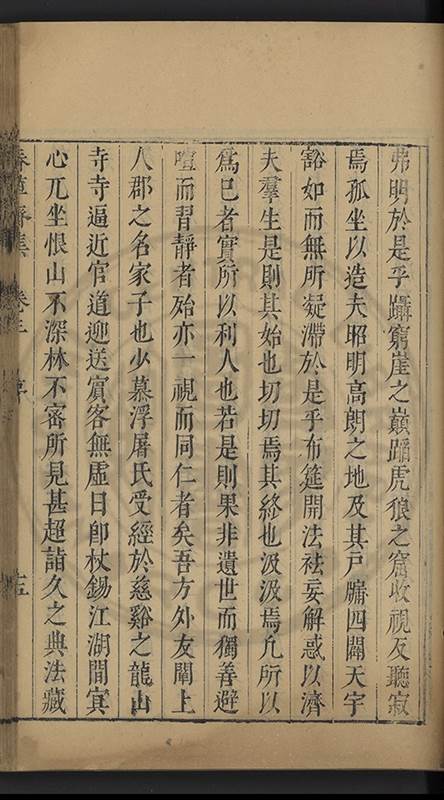 弗明於是乎躡窮崖之巔蹈虎狼之窟收視反聽寂
焉孤坐以造夫昭明高朗之地及其戶牖四闢天宇
豁如而無所凝滯於是乎布筵開法袪妄解惑以濟
夫羣生是則其始也切切焉其終也汲汲焉凢所以
爲巳者實所以利人也若是則果非遺世而獨善避
喧而習靜者殆亦一視而同仁者矣吾方外友闡上
人郡之名家子也少慕浮屠氏受經於慈谿之龍山
寺寺逼近官道迎送賓客無虛日卽杖錫江湖間㝠
心兀坐恨山不深林不密所見甚超詣久之典法藏
卷三